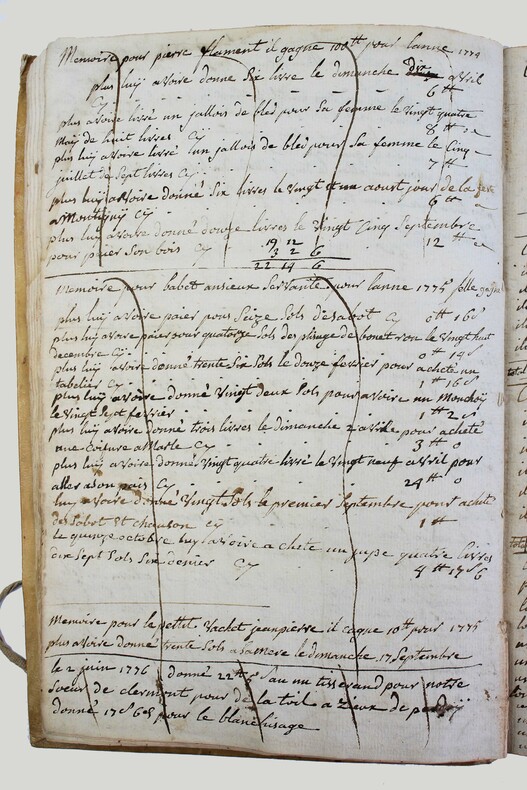 Memoire pour pierre flament il gagne 100tt pour lanne 1774
plus luy avoire donne Six livre le dimanche avril
Cy 6tt
plus avoire livré un jallois de bled pour Sa femme le vingt quatre
may de huit livres Cy 8tt
plus luy avoire livré un jallois de bled pour Sa femme le Cinq
juillet de Sept livres Cy 7tt
plus luy avoire donné Six livres le vingt et un aoust jour de la feste
a Montigny Cy 6tt
plus luy avoire donné douze livres le vingt Cinq Septembre
pour paier Son bois Cy 12tt
19 12
3 2 6
22 14 6
Memoire pour babet Servante pour lanne 1775 elle gagne
plus luy avoire paier pour Seize Sols de Sabot Cy 0tt 16s
plus luy avoire paier pour quatorze Sols de bonet le vingt huit
decembre Cy 0tt 14s
plus luy avoire donné trente Six Sols le douze fevrier pour acheté un
tabelier Cy 1tt 16s
plus luy avoire donné vingt deux Sols pour avoire un Mouchoy
le vingt Sept fevrier 1tt 2s
plus luy avoire donné trois livres le dimanche 2 avrile pour acheté
une Coiture a Marle Cy 3tt 0
plus luy avoire donné vingt quatre livre le vingt neuf avril pour
aller a Son pais Cy 24tt 0
luy avoire donné vingt Sols le premier Septembre pour acheté
des Sabot Et chauson Cy 1tt
le quinze octobre luy avoire acheté un jupe quatre livres
dix Sept Sols Six denier Cy 4tt 17s 6
Memoire pour le pettit vachet jeanpierre il gagne 10tt pour 1775
plus avoire donné trente Sols a Sa Mere le dimanche 17 Septembre
le 2 juin 1776 donné 22tt au un tisserand pour notre
Soeur de clermont pour de la toil a
donné 17s 6d pour le blanchisage